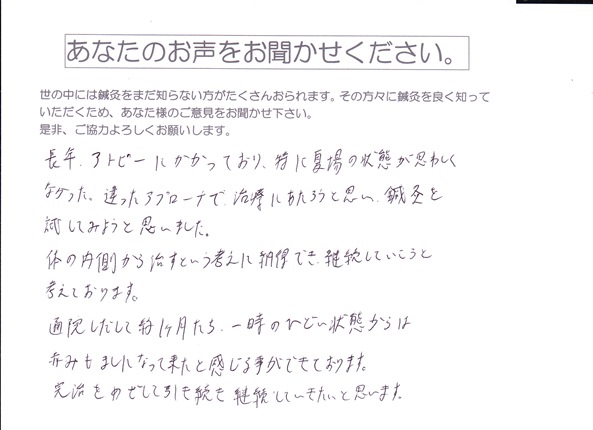 あなたのお声をお聞かせください。
世の中には鍼灸をまだ知らない方がたくさんおられます。その方々に鍼灸を良く知って
いただくため、あなた様のご意見をお聞かせ下さい。
是非、ご協力よろしくお願いします。
長年、アトピーにかかっており、特に夏場の状態が思わしく
なかった。違ったアプローチで、治療にあたろうと思い、鍼灸を
試してみようと思いました。
体の内側から治すという考えに納得でき、継続していこうと
考えております。
通院しだして約1ヶ月たち、一時のひどい状態からは
赤みもましになって来たと感じる事ができております。
完治をめざして引き続き継続していきたいと思います。